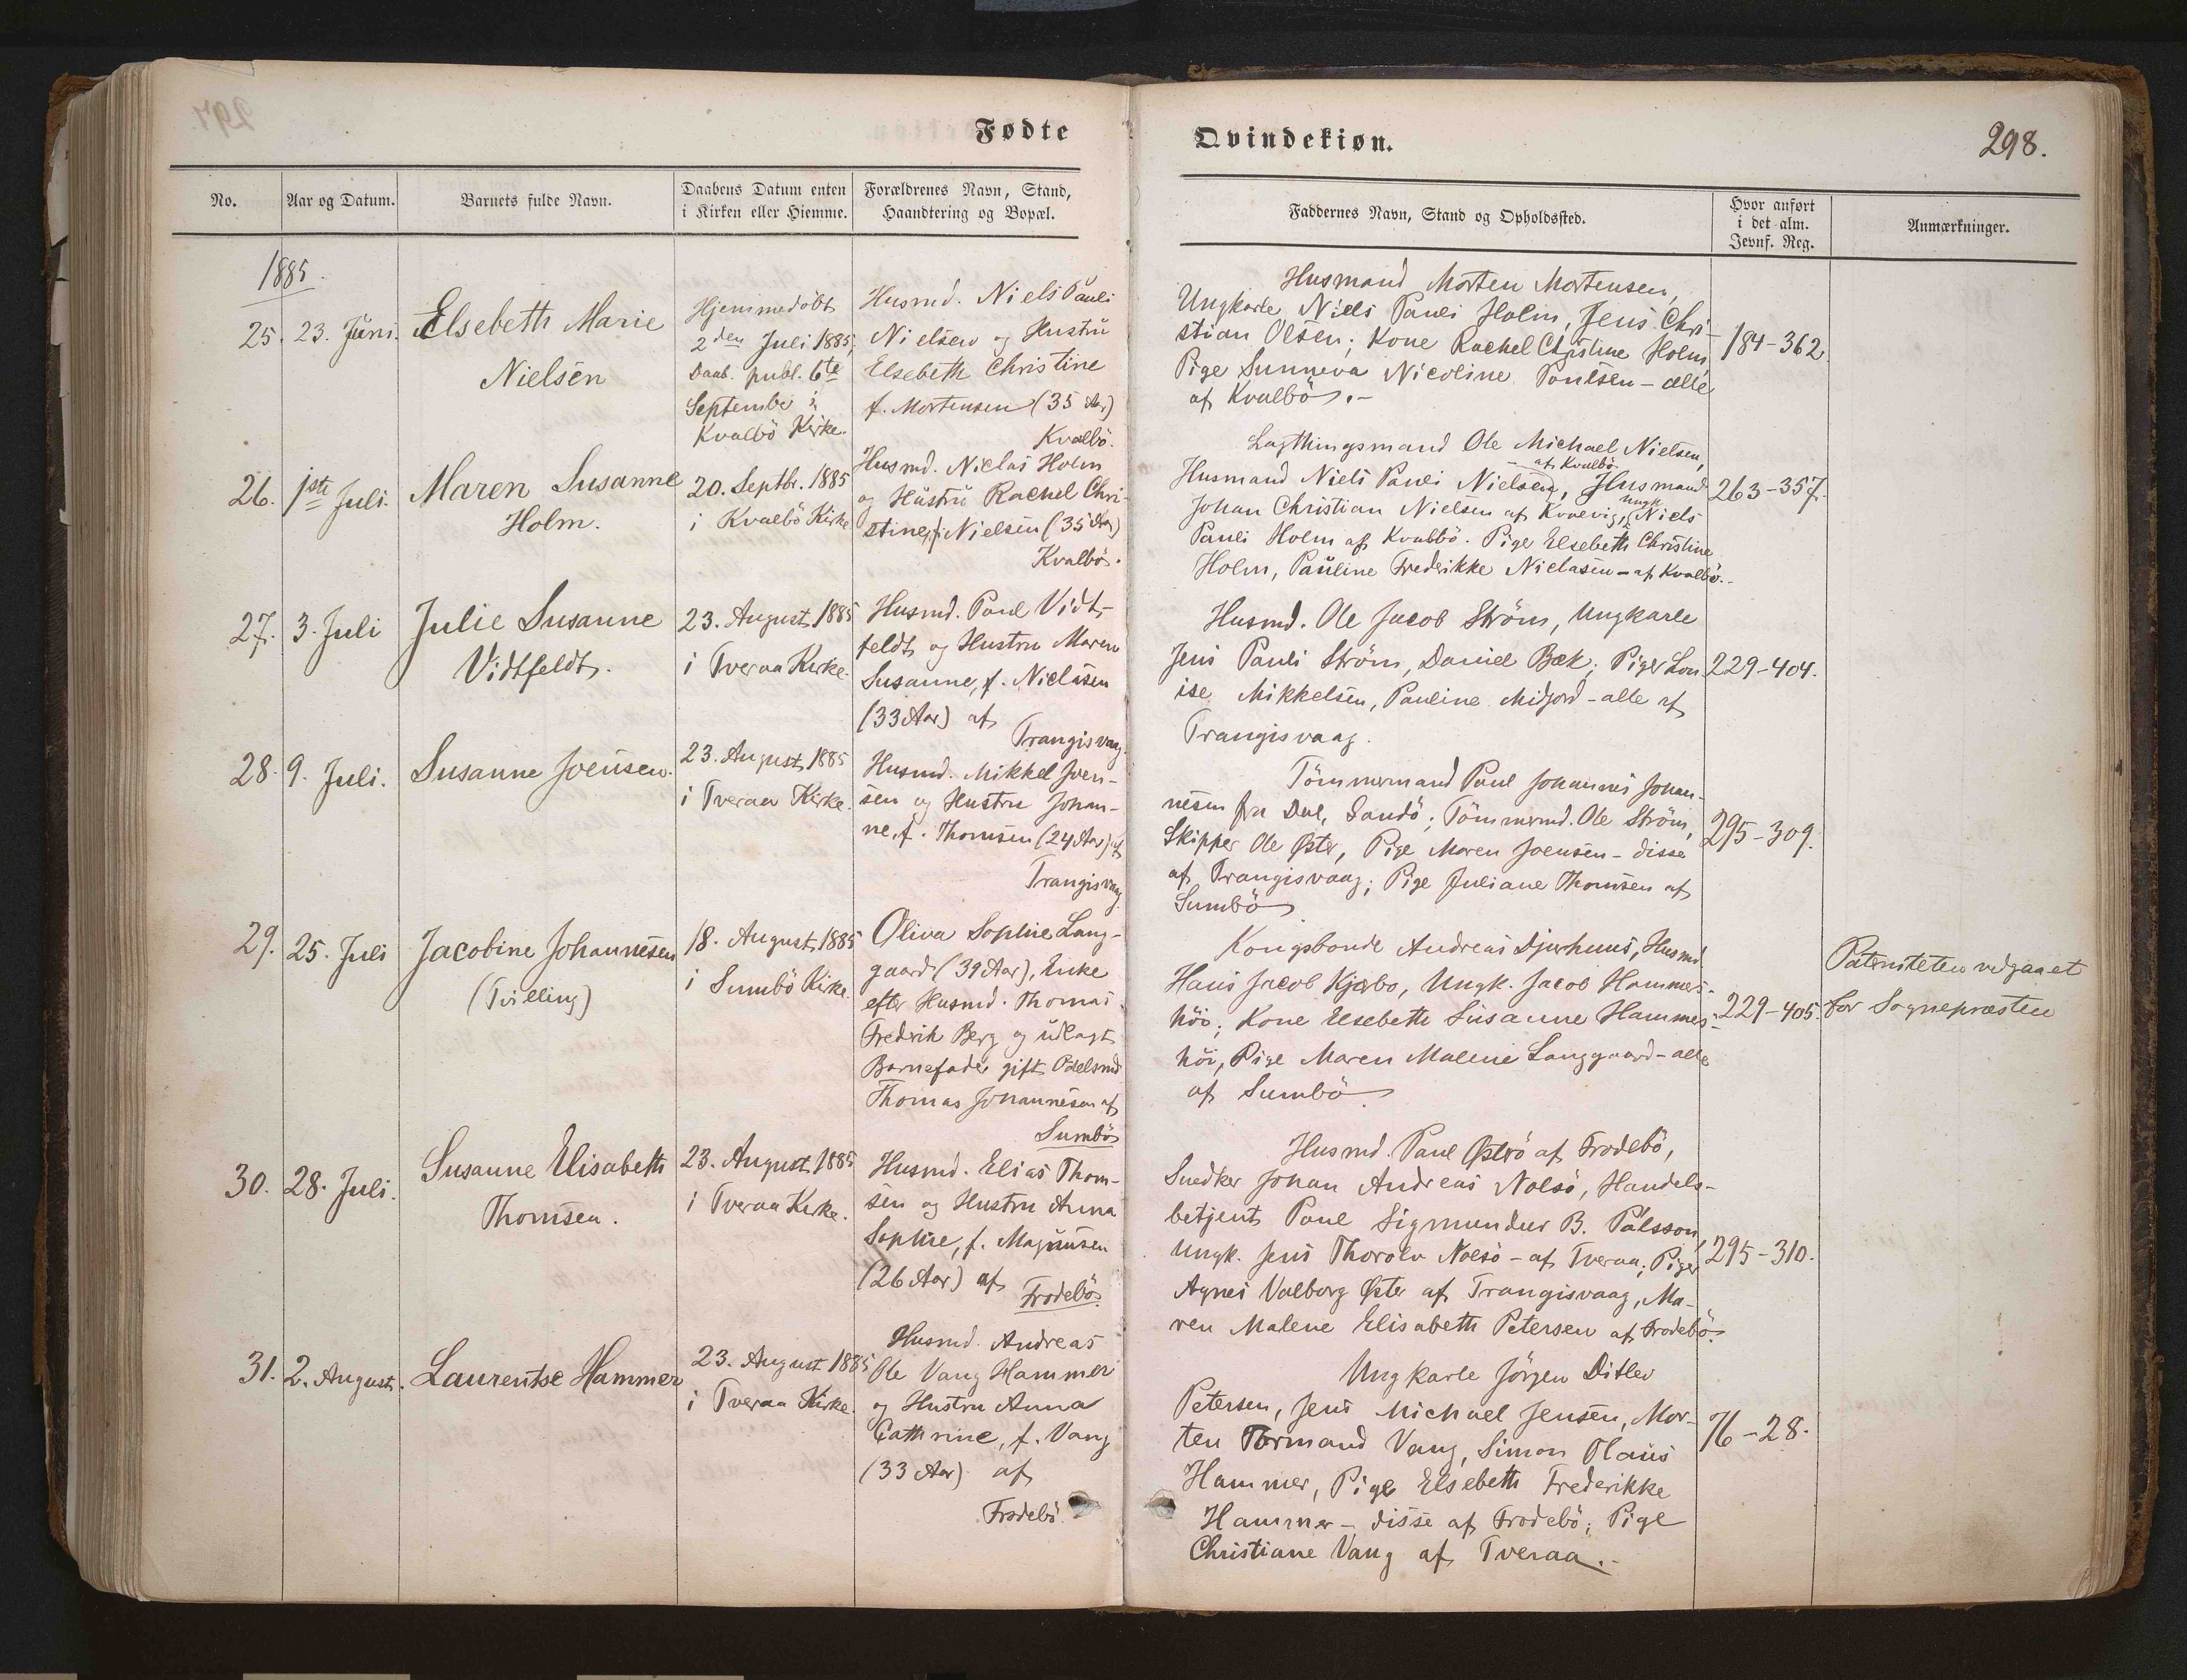 Fødte
Qvindekiøn.
298.
No.
Aar og Datum.
Barnets fulde Navn.
Daabens Datum enten
i Kirken eller Hiemme.
Forældrenes Navn, Stand,
Haandtering og Bopæl.
Faddernes Navn, Stand og Opholdssted.
Hvor anført
i det alm.
Jevnf. Reg.
Anmærkninger.
1885.
25.
23. Juni.
Elsebeth Marie
Nielsen
Hjemmedöbt
2den Juli 1885,
Daab. publ. 6te
September i
Kvalbö Kirke.
Husmd. Niels Pauli
Nielsen og Hustru
Elsebeth Christine
f. Mortensen (35 Aar)
Kvalbö.
Husmand Morten Mortensen,
Ungkarle Niels Pauli Holm, Jens Chri-
stian Olsen; Kone Rachel Christine Holm,
Pige Sunneva Nicoline Poulsen - alle
af Kvalbö.-
184-362
26.
1ste Juli.
Maren Susanne
Holm.
20. Septbr. 1885
i Kvalbö Kirke
Husmd. Niclas Holm
og Hustru Rachel Chri-
stine, f. Nielsen (35 Aar)
Kvalbö.
Lagthingsmand Ole Michael Nielsen,
- af Kvalbö
Husmand Niels Pauli Nielsen, Husmand
Johan Christian Nielsen af Kvalvig, Ungk. Niels
Pauli Holm af Kvalbö. Piger Elsebeth Christine
Holm, Pauline Frederikke Niclasen - af Kvalbö.-
263-357.
27.
3. Juli
Julie Susanne
Vidtfeldt.
23. August 1885
i Tveraa Kirke.
Husmd. Poul Vidt-
feldt og Hustru Maren
Susanne, f. Niclasen
(33 Aar) af
Trangisvaag.
Husmd. Ole Jacob Ström, Ungkarle
Jens Pauli Ström, Daniel Bæk; Piger Lou-
ise Mikkelsen, Pauline Midjord - alle af
Trangisvaag.
229-404.
28.
9. Juli.
Susanne Joensen.
23. August 1885
i Tveraa Kirke.
Husmd. Mikkel Joen-
sen og Hustru Johan-
ne, f. Thomsen (24 Aar) af
Trangisvaag
Tömmermand Poul Johannes Johan-
nesen fra Dal, Sandö; Tömmermd. Ole Ström,
Skipper Ole Øster, Pige Maren Joensen - disse
af Trangisvaag; Pige Juliane Thomsen af
Sumbö
295-309.
29.
25. Juli
Jacobine Johannesen
(Tvilling)
18. August 1885
i Sumbö Kirke.
Oliva Sophie Lang-
gaard (39 Aar), Enke
efter Husmd. Thomas
Fredrik Berg og udlagt
Barnefader gift Odelsmd.
Thomas Johannesen af
Sumbö
Kongsbonde Andreas Djurhuus, Husmd.
Hans Jacob Kjærbo, Ungk. Jacob Hammers-
höi; Kone Elsebeth Susanne Hammers-
höi, Pige Maren Malene Langgaard - alle
af Sumbö
229-405.
Paterniteten vedgaaet
for Sognepræsten
30.
28. Juli.
Susanne Elisabeth
Thomsen.
23. August 1885
i Tveraa Kirke.
Husmd. Elias Thom-
sen og Hustru Anna
Sophie, f. Magnussen
(26 Aar) af
Frodebö.
Husmd. Poul Øström af Frodebö,
Snedker Johan Andreas Nolsö, Handels-
betjent Poul Sigmundur B. Pálsson,
Ungk. Jens Thorolv Nolsö - af Tveraa; Piger
Agnes Valborg Øster af Trangisvaag, Ma-
ren Malene Elisabeth Petersen af Frodebö.
295-310.
31.
2. August.
Laurentse Hammer
23. August 1885
i Tveraa Kirke.
Husmd. Andreas
Ole Vang Hammer
og Hustru Anna
Cathrine, f. Vang
(33 Aar) af
Frodebö.
Ungkarle Jörgen Ditlev
Petersen, Jens Michael Jensen, Mor-
ten Tormand Vang, Simon Olaus
Hammer, Pige Elsebeth Frederikke
Hammer - disse af Frodebö; Pige
Christiane Vang af Tveraa.-
76-28.